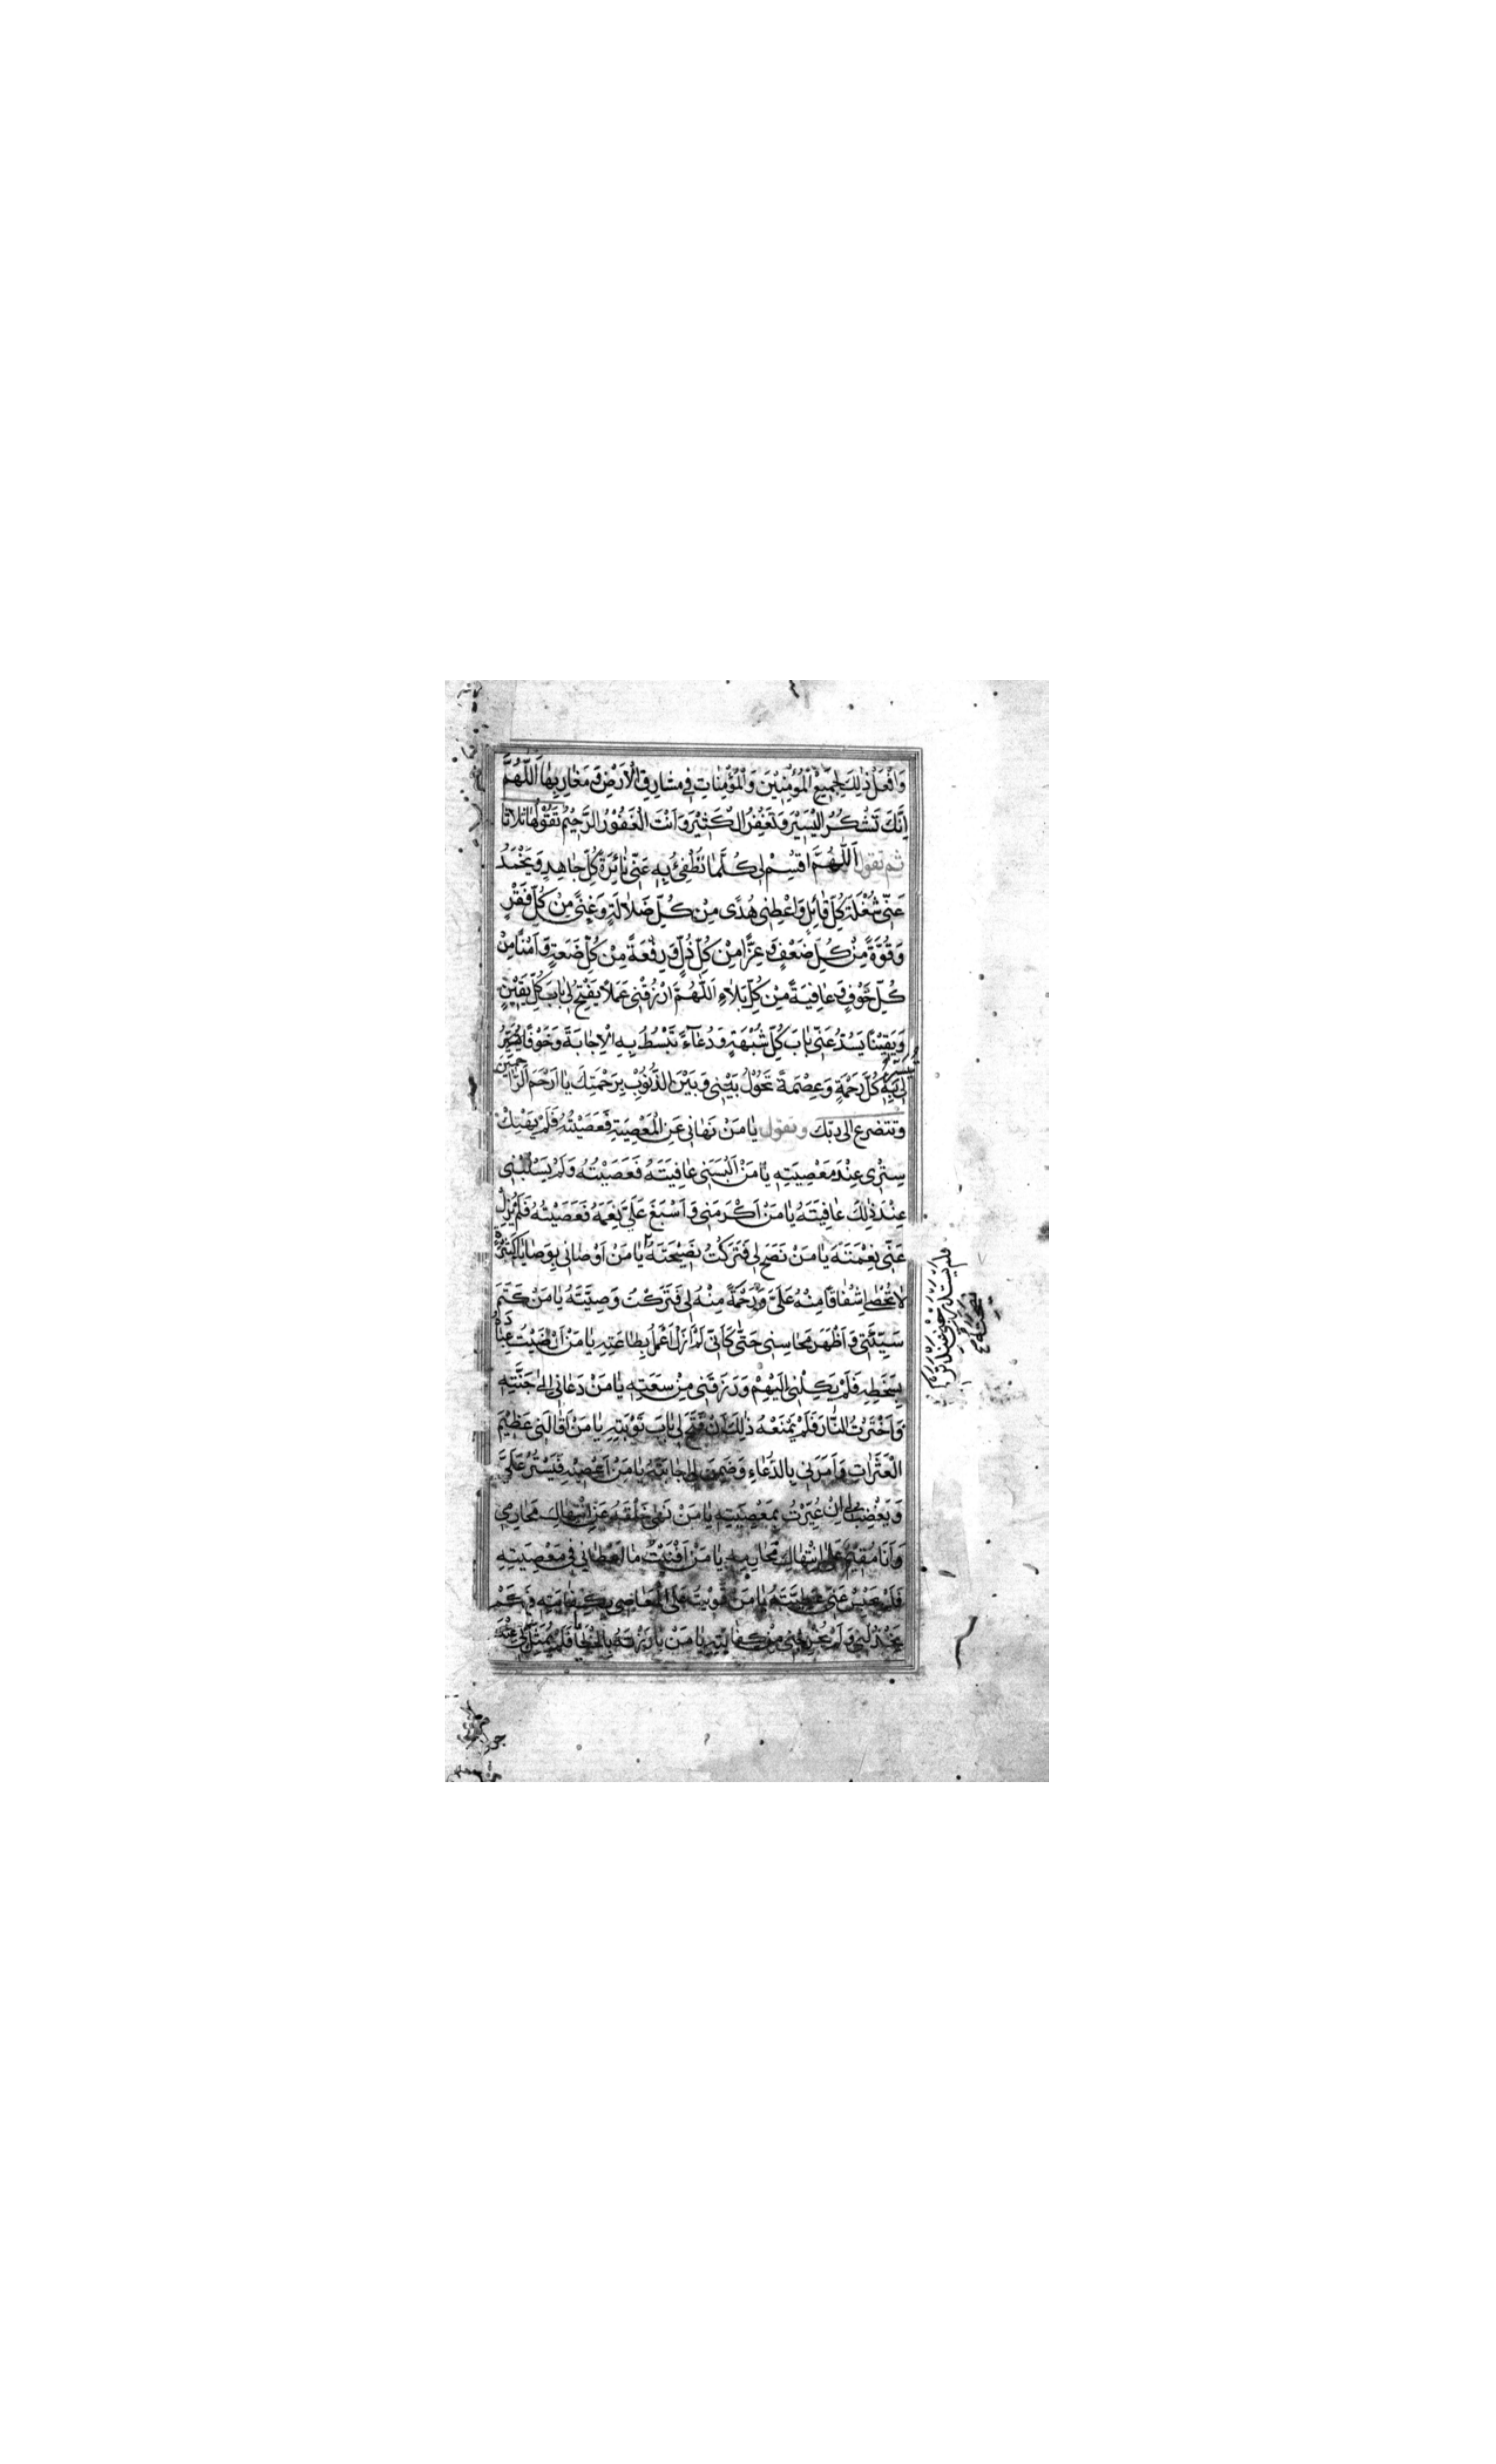 وَافْعَلْ ذٰلِكَ لِجَمِيْعِ الْمُؤْمِنِيْنَ وَالْمُؤْمِنَاتِ فِى مَشَارِقِ الْاَرْضِ وَمَغَارِبِهَا اَللّٰهُمَّ
اِنَّكَ تَشْكُرُ الْيَسِيْرَ وَتَغْفِرُ الْكَثِيْرَ وَاَنْتَ الْغَفُوْرُ الرَّحِيْمُ تَقُوْلُهَا ثَلَاثًا
ثم تقول اَللّٰهُمَّ اقْسِمْ لِى كُلَّمَا تُطْفِئُ بِهِ عَنِّى نَائِرَةَ كُلِّ جَاهِدٍ وَيَخْمَدُ
عَنِّى شُعْلَةَ كُلِّ قَائِلٍ وَاَعْطِنِى هُدًى مِنْ كُلِّ ضَلَالَةٍ وَغِنًى مِنْ كُلِّ فَقْرٍ
وَقُوَّةً مِنْ كُلِّ ضَعْفٍ وَعِزًّا مِنْ كُلِّ ذُلٍّ وَرِفْعَةً مِنْ كُلِّ ضَعَةٍ وَاَمْنًا مِنْ
كُلِّ خَوْفٍ وَعَافِيَةً مِنْ كُلِّ بَلَاءٍ اَللّٰهُمَّ ارْزُقْنِى عَمَلًا يَفْتَحُ لِى بَابَ كُلِّ يَقِيْنٍ
وَيَقِيْنًا يَسُدُّ عَنِّى بَابَ كُلِّ شُبْهَةٍ وَدُعَاءً تَبْسُطُ بِهِ الْاِجَابَةَ وَخَوْفًا
لِى بِهِ كُلَّ رَحْمَةٍ وَعِصْمَةً تَحُوْلُ بَيْنِى وَبَيْنَ الذُّنُوْبِ بِرَحْمَتِكَ يَا اَرْحَمَ الرَّاحِمِيْنَ
وتتضرع الى ربك وتقول يَا مَنْ نَهَانِى عَنِ الْمَعْصِيَةِ فَعَصَيْتُهُ فَلَمْ يَهْتِكْ
سِتْرِى عِنْدَ مَعْصِيَتِهِ يَا مَنْ اَلْبَسَنِى عَافِيَتَهُ فَعَصَيْتُهُ وَلَمْ يَسْلُبْنِى
عِنْدَ ذٰلِكَ عَافِيَتَهُ يَا مَنْ اَكْرَمَنِى وَاَسْبَغَ عَلَىَّ نِعَمَهُ فَعَصَيْتُهُ فَلَمْ يُزِلْ
عَنِّى نِعْمَتَهُ يَا مَنْ نَصَحَ لِى فَتَرَكْتُ نَصِيْحَتَهُ يَا مَنْ اَوْصَانِى بِوَصَايَا كَثِيْرَةٍ
لَا تُحْصٰى اِشْفَاقًا مِنْهُ عَلَىَّ وَرَحْمَةً مِنْهُ لِى فَتَرَكْتُ وَصِيَّتَهُ يَا مَنْ كَتَمَ
سَيِّئَتِى وَاَظْهَرَ مَحَاسِنِى حَتّٰى كَاَنِّى لَمْ اَزَلْ اَعْمَلُ بِطَاعَتِهِ يَا مَنْ اَرْضَيْتُ عِبَادَهُ
بِسَخَطِهِ فَلَمْ يَكِلْنِى اِلَيْهِمْ وَرَزَقَنِى مِنْ سَعَتِهِ يَا مَنْ دَعَانِى اِلٰى جَنَّتِهِ
وَاخْتَرْتُ النَّارَ فَلَمْ يَمْنَعْهُ ذٰلِكَ اَنْ فَتَحَ لِى بَابَ تَوْبَتِهِ يَا مَنْ اَقَالَنِى عَظِيْمَ
الْعَثَرَاتِ وَاَمَرَنِى بِالدُّعَاءِ وَضَمِنَ لِى اِجَابَتَهُ يَا مَنْ اَعْصِيْهِ فَيَسْتُرُ عَلَىَّ
وَيَغْضِبُ لِى اِنْ عُيِّرْتُ بِمَعْصِيَتِهِ يَا مَنْ نَهٰى خَلْقَهُ عَنِ انْتِهَاكِ مَحَارِمِى
وَاَنَا مُقِيْمٌ عَلٰى انْتِهَاكِ مَحَارِمِهِ يَا مَنْ اَفْنَيْتُ مَا اَعْطَانِى فِى مَعْصِيَتِهِ
فَلَمْ يَحْبِسْ عَنِّى عَطِيَّتَهُ يَا مَنْ قَوِيْتُ عَلَى الْمَعَاصِى بِكِفَايَتِهِ فَلَمْ
يَخْذُلْنِى وَلَمْ يُخْرِجْنِى مِنْ كِفَايَتِهِ يَا مَنْ بَارَزْتُهُ بِالْخَطَايَا فَلَمْ يُمَثِّلْ بِى عِنْدَ